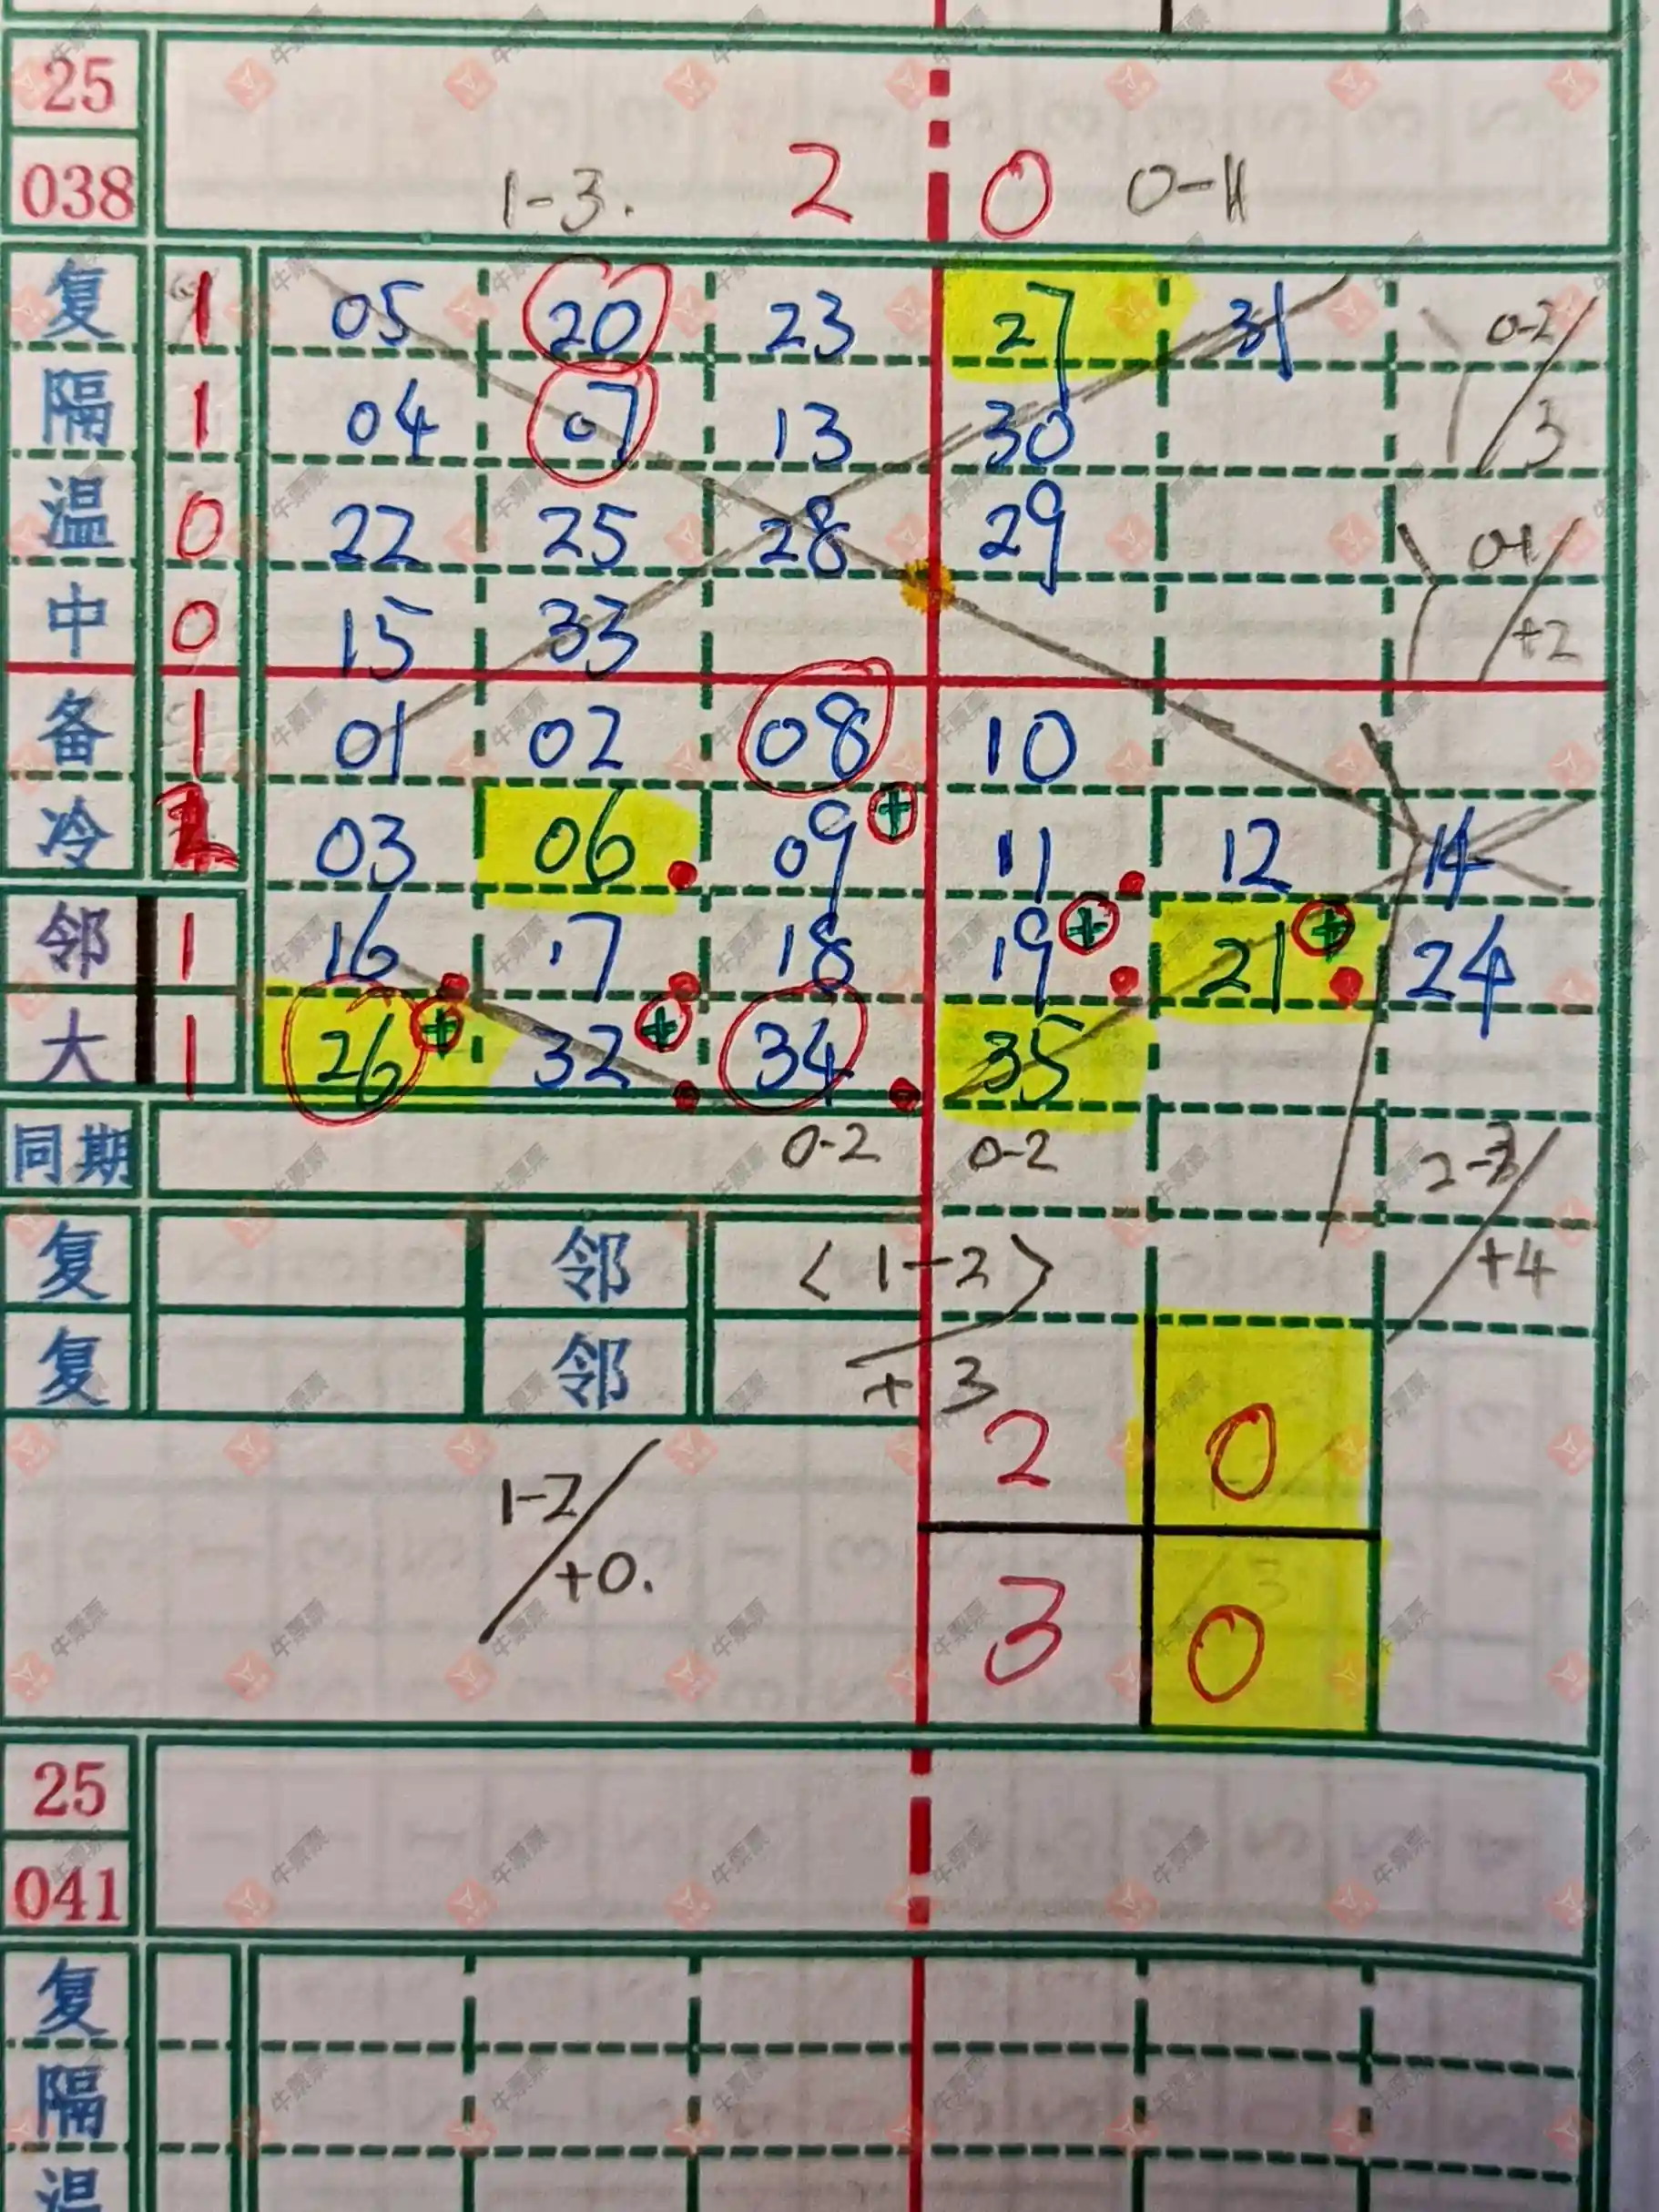 25
038 1-3. 2 0 0-1
复 1 05 20 23 27 31 0-2
隔 1 04 07 13 30 3
温 0 22 25 28 29 0-1
中 0 15 33 +2
备 1 01 02 08 10
冷 03 06 09 + 11 12 14
邻 1 16 17 18 19 + 21 + 24
大 1 26 + 32 + 34 35
同期 0-2 0-2
复 邻 <1-2> +4
复 邻 +3
2 0
1-2
+0.
3 0
25
041
复
隔
温
牛票票